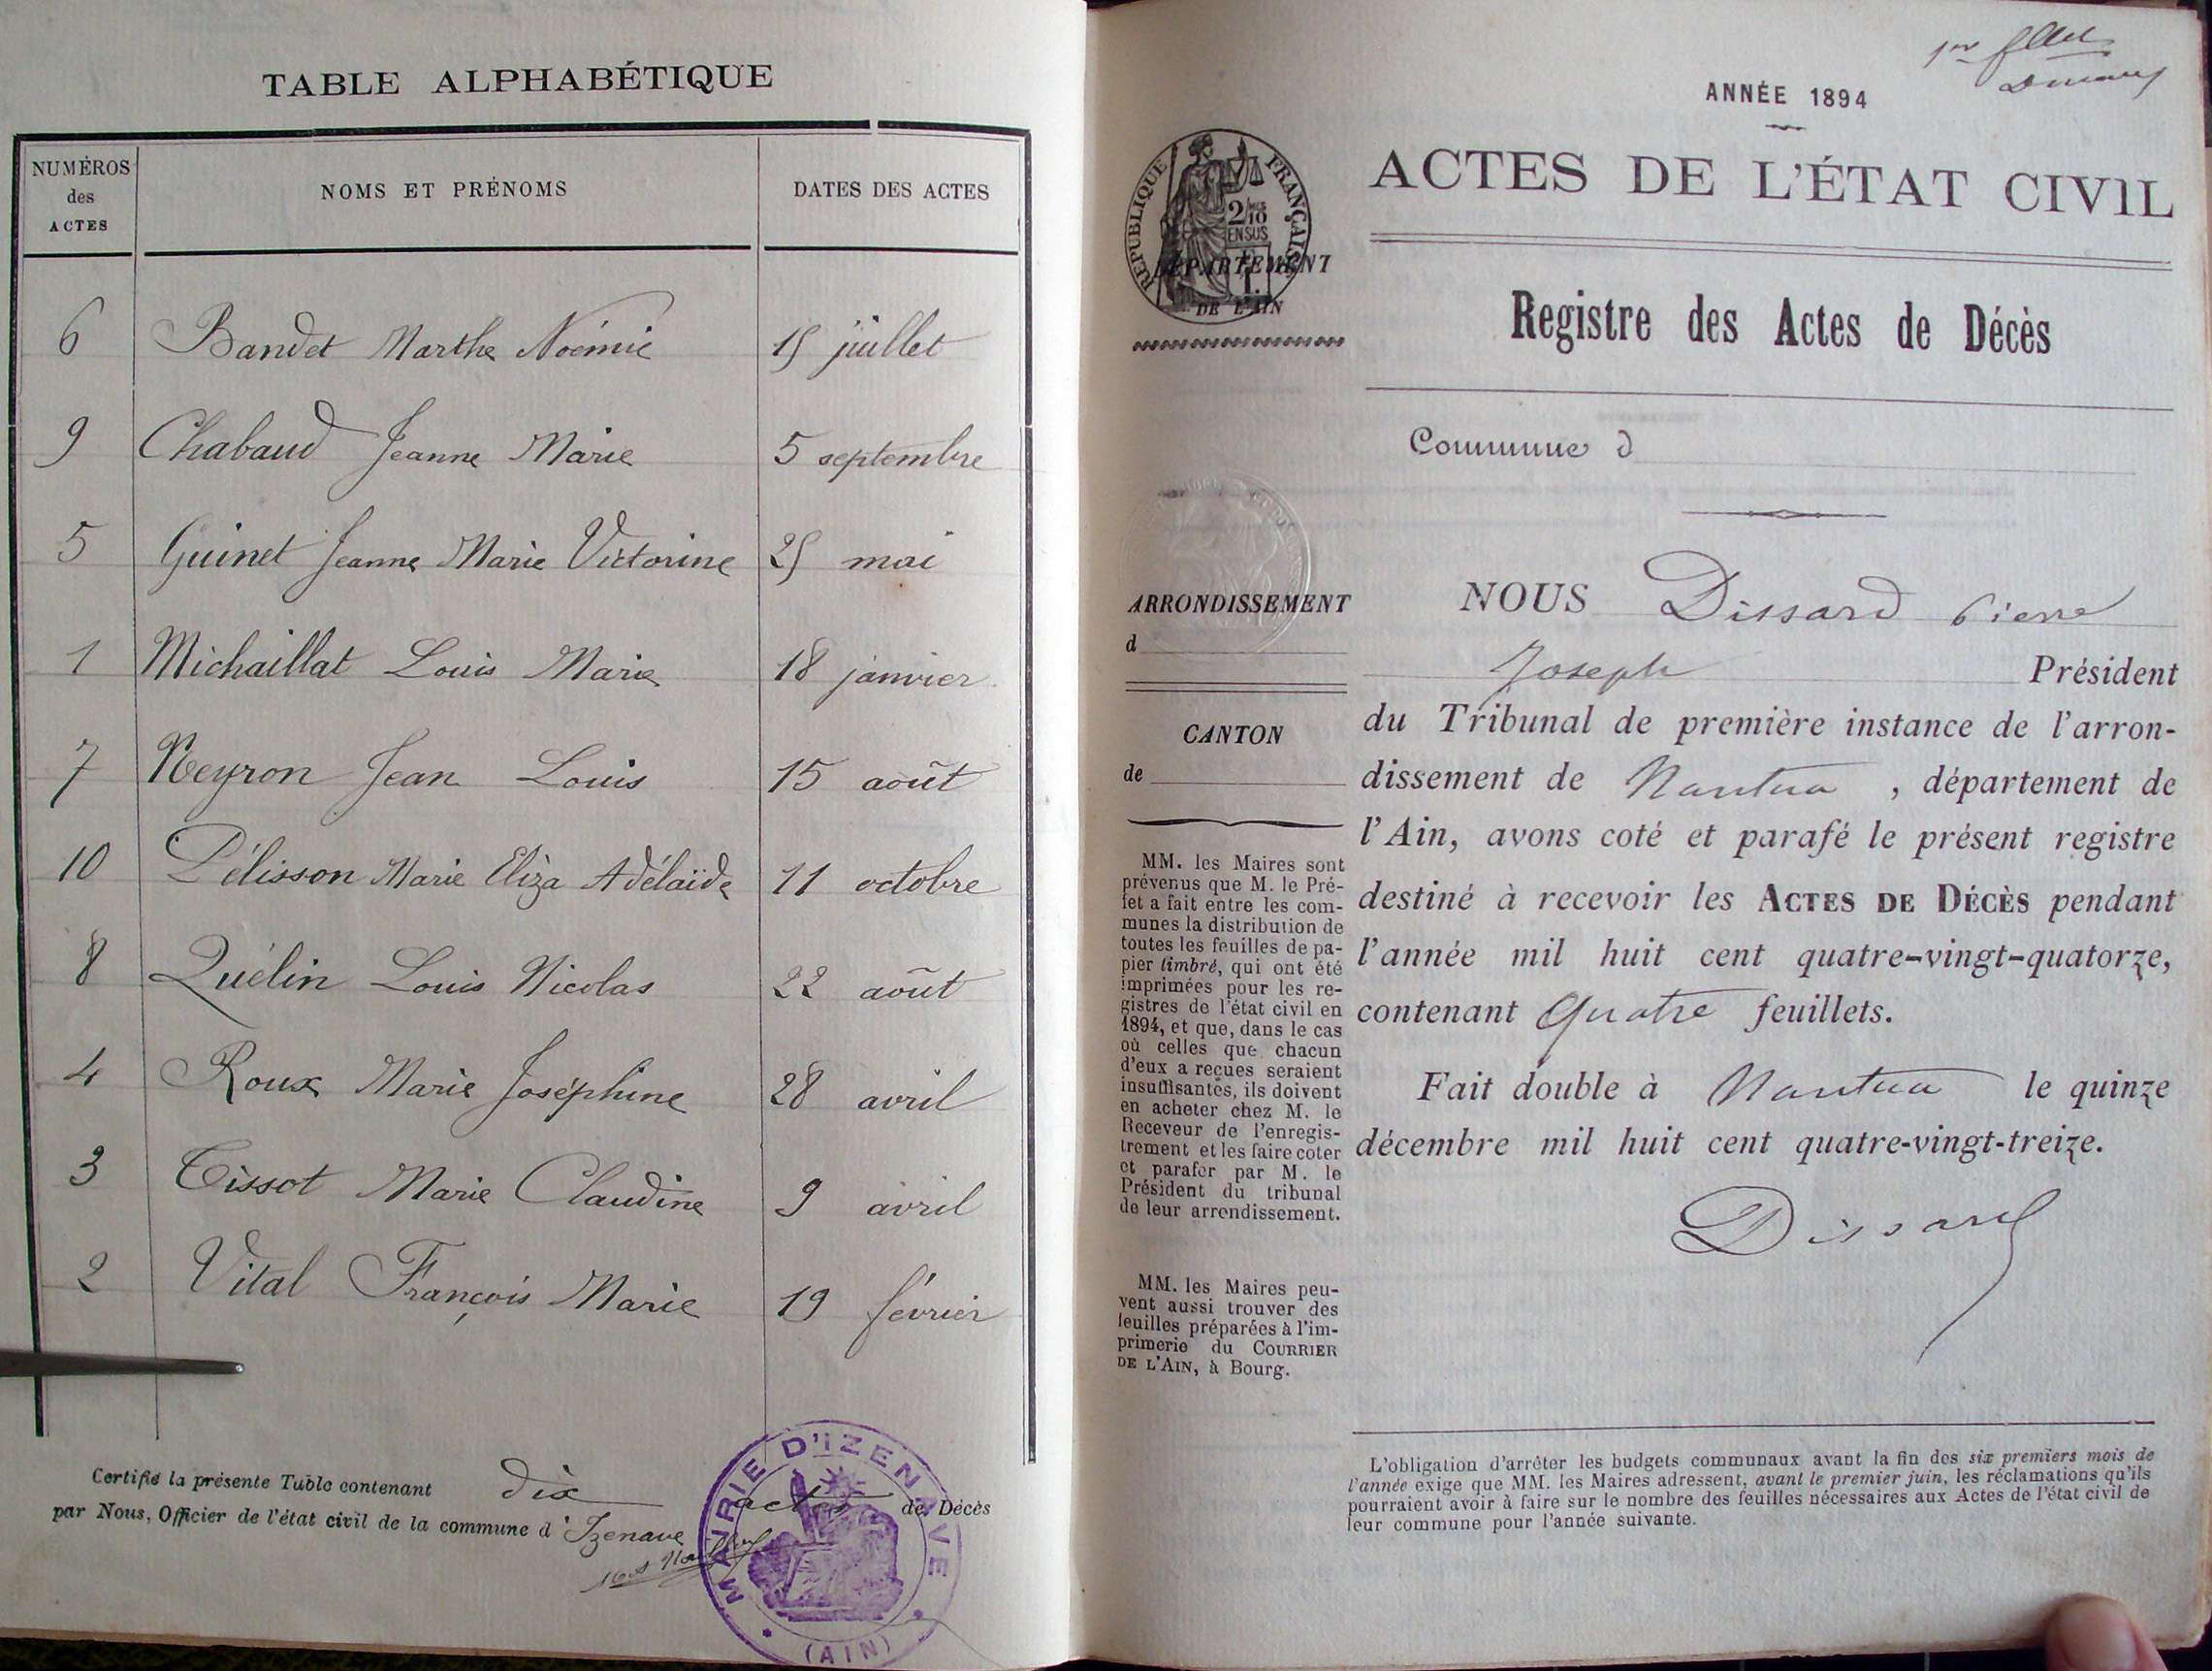 TABLE ALPHABÉTIQUE
NUMÉROS des ACTES | NOMS ET PRÉNOMS | DATES DES ACTES
6 Bandet Marthe Noémie 15 juillet
9 Chabaud Jeanne Marie 5 septembre
5 Guinet Jeanne Marie Victorine 25 mai
1 Michaillat Louis Marie 18 janvier
7 Neyron Jean Louis 15 août
10 Pélisson Marie Eliza Adélaïde 11 octobre
8 Quélin Louis Nicolas 22 août
4 Roux Marie Joséphine 28 avril
3 Tissot Marie Claudine 9 avril
2 Vital François Marie 19 février
Certifié la présente Table contenant dix actes de Décès
par Nous, Officier de l'état civil de la commune d'Izenave
MAIRIE D'IZENAVE
(AIN)
ANNÉE 1894
RÉPUBLIQUE FRANÇAISE
2/10 EN SUS
DÉPARTEMENT
DE L'AIN
ACTES DE L'ÉTAT CIVIL
Registre des Actes de Décès
Commune d
ARRONDISSEMENT
d
CANTON
de
MM. les Maires sont
prévenus que M. le Pré-
fet a fait entre les com-
munes la distribution de
toutes les feuilles de pa-
pier timbré, qui ont été
imprimées pour les re-
gistres de l'état civil en
1894, et que, dans le cas
où celles que chacun
d'eux a reçues seraient
insuffisantes, ils doivent
en acheter chez M. le
Receveur de l'enregis-
trement et les faire coter
et parafer par M. le
Président du tribunal
de leur arrondissement.
MM. les Maires peu-
vent aussi trouver des
feuilles préparées à l'im-
primerie du COURRIER
DE L'AIN, à Bourg.
NOUS Dissard Pierre
Joseph Président
du Tribunal de première instance de l'arron-
dissement de Nantua, département de
l'Ain, avons coté et parafé le présent registre
destiné à recevoir les ACTES DE DÉCÈS pendant
l'année mil huit cent quatre-vingt-quatorze,
contenant Quatre feuillets.
Fait double à Nantua le quinze
décembre mil huit cent quatre-vingt-treize.
Dissard
L'obligation d'arrêter les budgets communaux avant la fin des six premiers mois de
l'année exige que MM. les Maires adressent, avant le premier juin, les réclamations qu'ils
pourraient avoir à faire sur le nombre des feuilles nécessaires aux Actes de l'état civil de
leur commune pour l'année suivante.